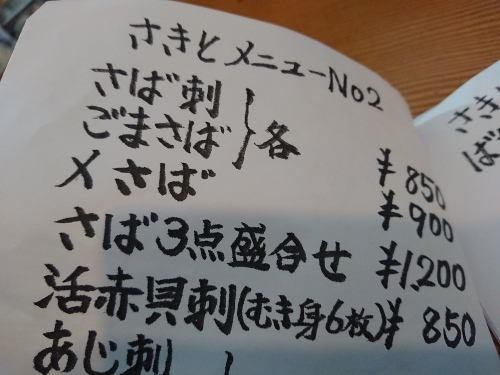 さきとメニューNo2
さばˋ刺
ごまさば } 各 ¥850
〆さば ¥900
さば3点盛合せ ¥1,200
活赤貝刺(むき身6枚) ¥850
あじ刺
さき
ば